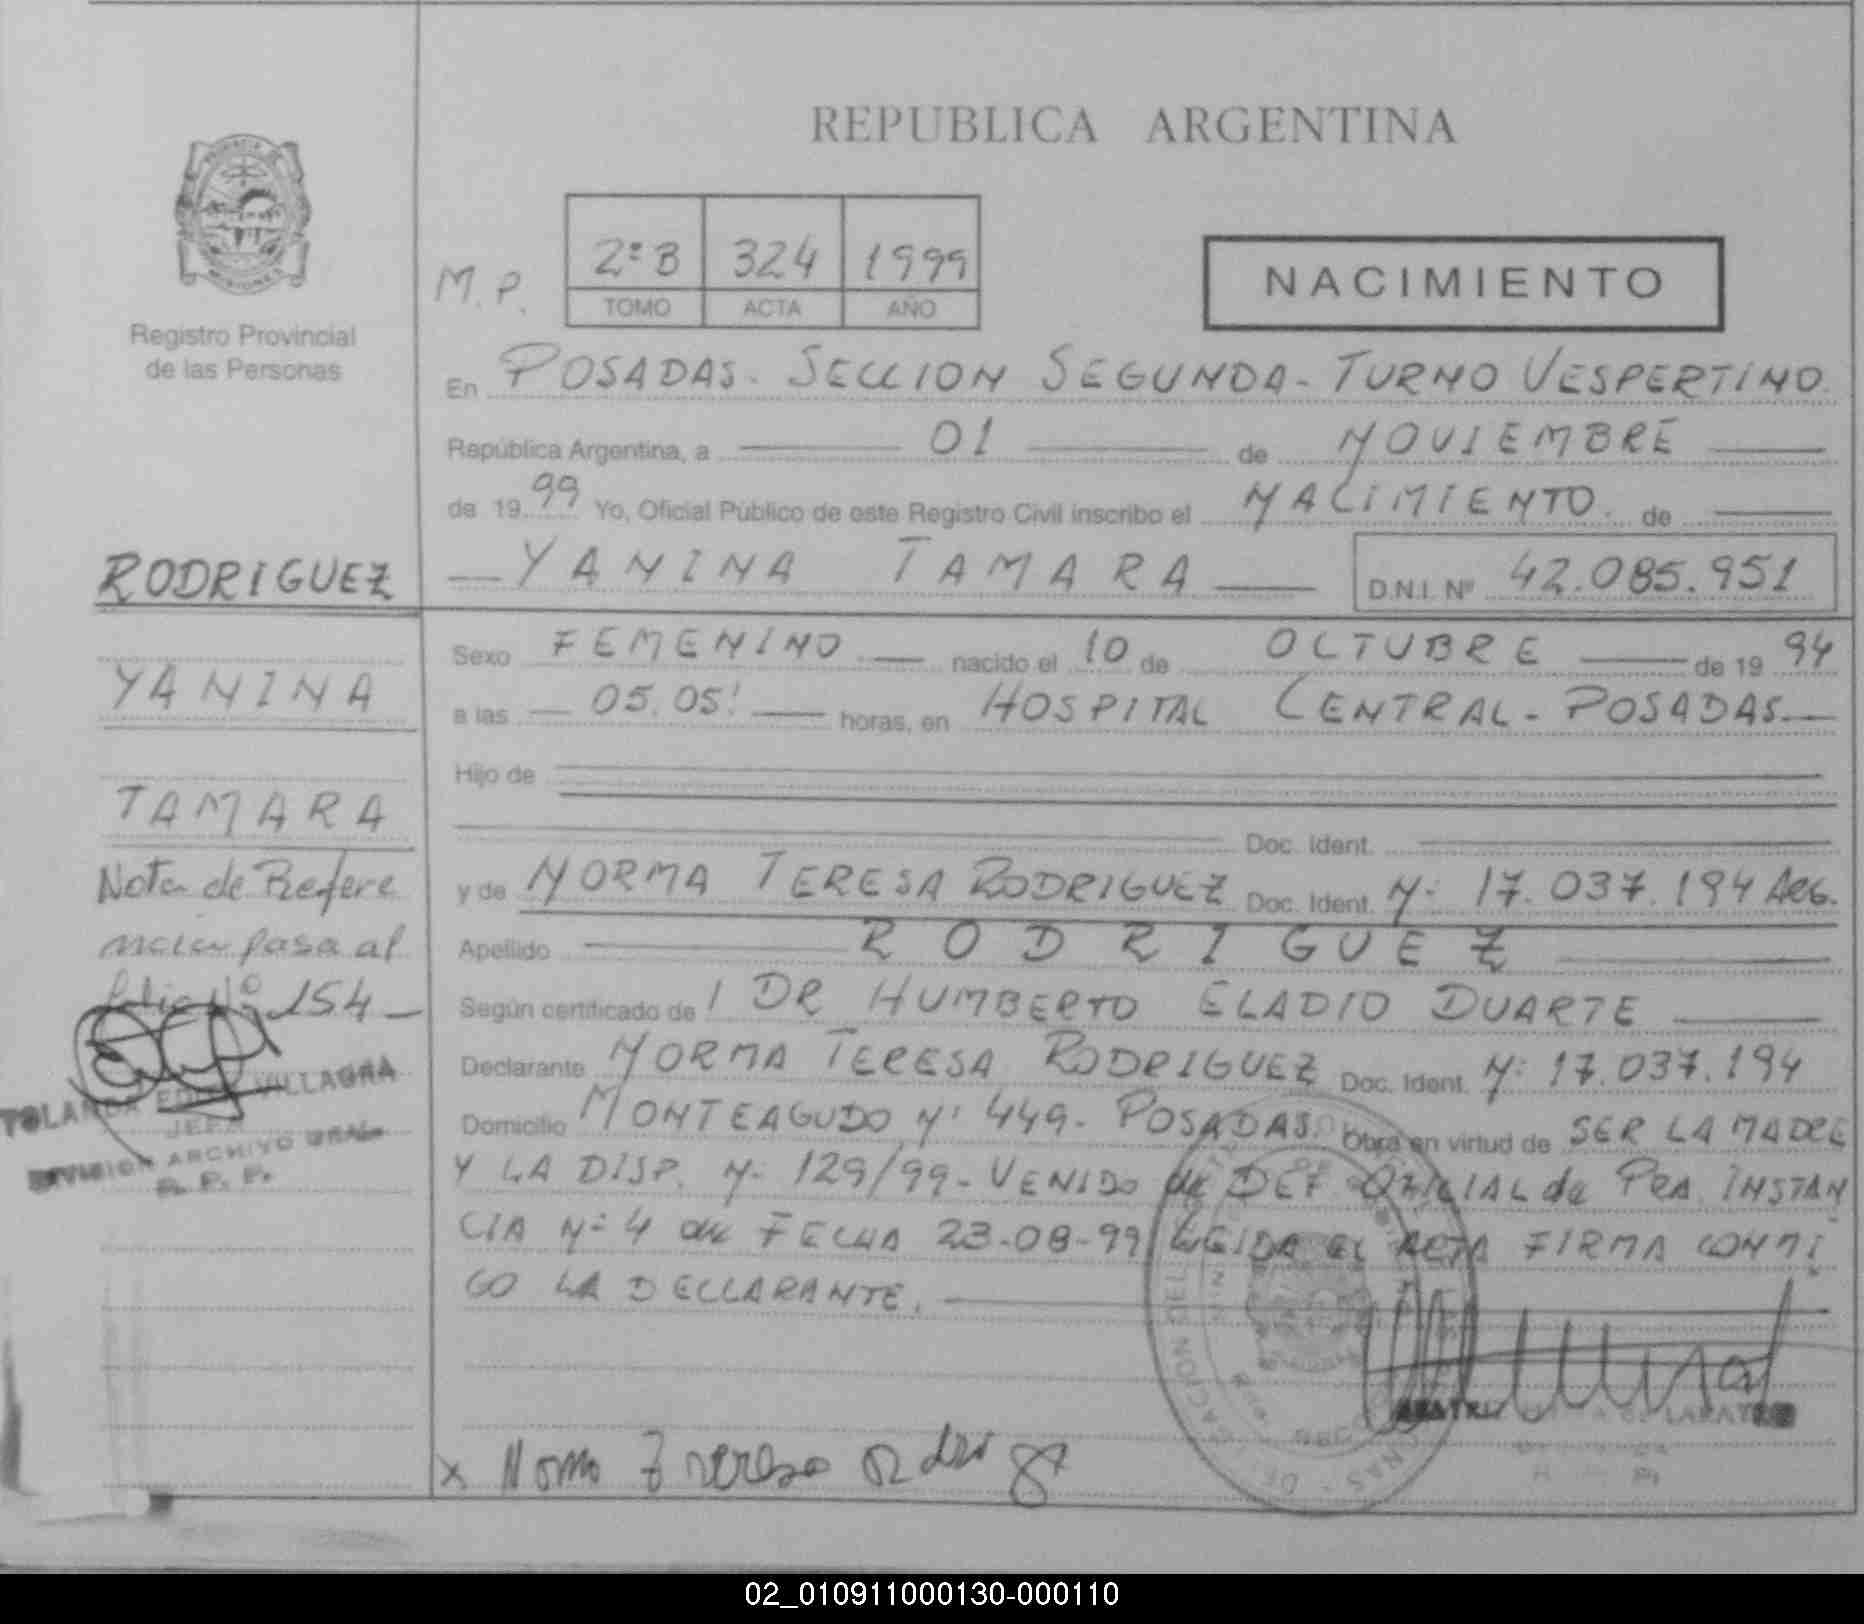 REPUBLICA ARGENTINA
Registro Provincial
de las Personas
M. P.
2º B 324 1999
TOMO ACTA AÑO
NACIMIENTO
En POSADAS. SECCION SEGUNDA - TURNO VESPERTINO.
República Argentina, a 01 de NOVIEMBRE
de 19 99 Yo, Oficial Público de este Registro Civil inscribo el NACIMIENTO de
YANINA TAMARA D.N.I. Nº 42.085.951
Sexo FEMENINO nacido el 10 de OCTUBRE de 19 94
a las 05.05' horas, en HOSPITAL CENTRAL - POSADAS.
Hijo de
Doc. Ident.
y de NORMA TERESA RODRIGUEZ Doc. Ident. Nº 17.037.194 ARG.
Apellido RODRIGUEZ
Según certificado de 1 DR HUMBERTO ELADIO DUARTE
Declarante NORMA TERESA RODRIGUEZ Doc. Ident. Nº 17.037.194
Domicilio MONTEAGUDO Nº 449 - POSADAS. Obra en virtud de SER LA MADRE
Y LA DISP. Nº 129/99 - VENIDO de DEF. OFICIAL de PRA. INSTAN
CIA Nº 4 de FECHA 23-08-99 LEIDA EL ACTA FIRMA CONMI
GO LA DECLARANTE.
RODRIGUEZ
YANINA
TAMARA
Nota de Refere
ncia pasa al
folio Nº 154
VILLAGRA
JEFA
DIVISION ARCHIVO GRAL.
R. P. P.
x Norma Teresa
02_010911000130-000110